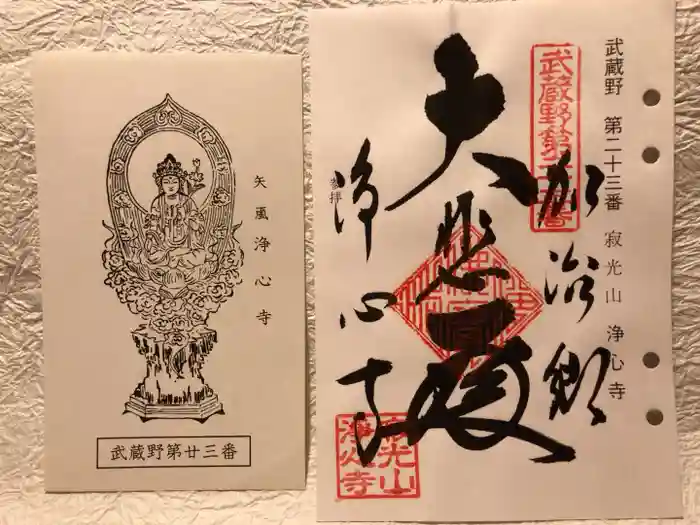 矢颪浄心寺
武蔵野第廿三番
武蔵野 第二十三番 寂光山 浄心寺
加治郷
大悲殿
参拝
浄心寺
武蔵野第二十三番
寂光山
浄心寺